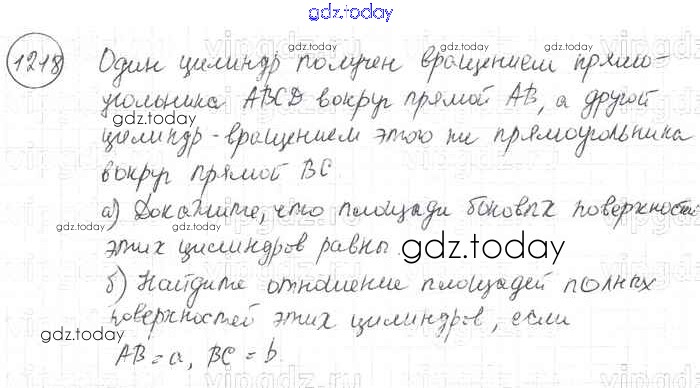 gdz.today
1218
Один цилиндр получен вращением прямо-
угольника ABCD вокруг прямой AB, а другой
цилиндр - вращением этого же прямоугольника
вокруг прямой BC.
а) Докажите, что площади боковых поверхности
этих цилиндров равны.
gdz.today
б) Найдите отношение площадей полных
поверхностей этих цилиндров, если
AB = a, BC = b.
gdz.today
gdz.today
gdz.today
gdz.today
gdz.today
gdz.today